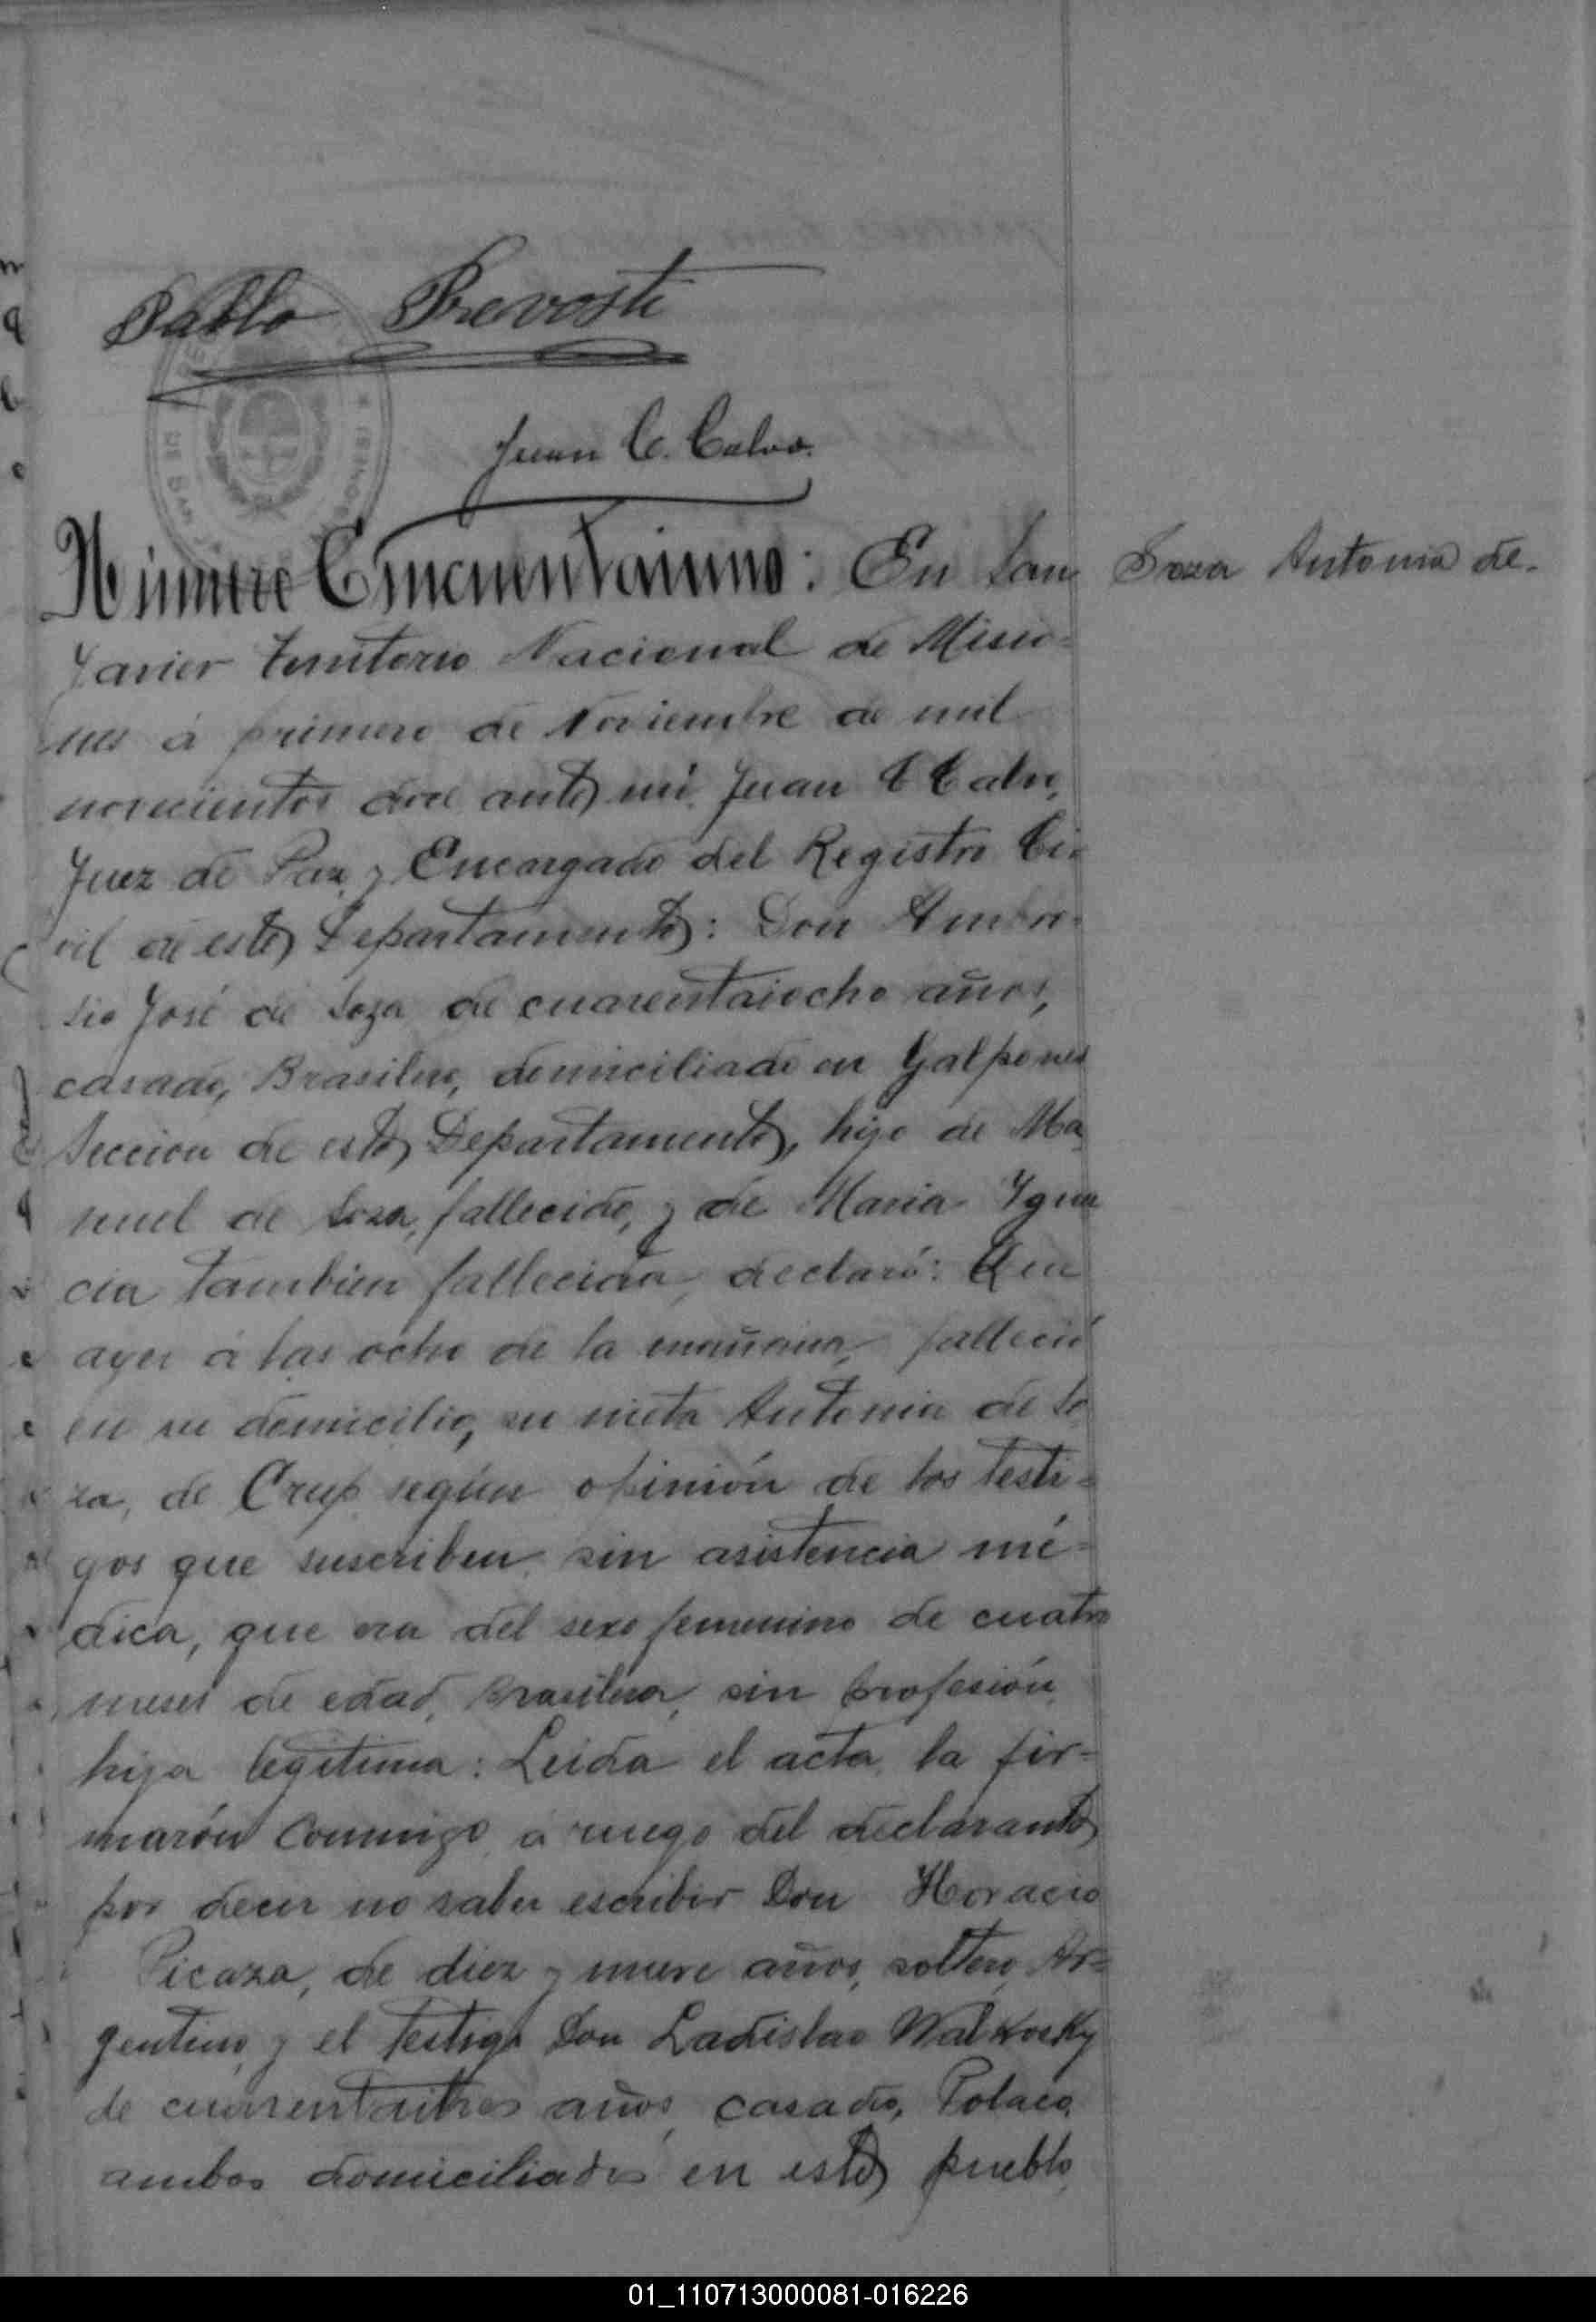 Pablo Prevosti
Juan C. Calvo.
Número Cincuentaiuno: En San
Soza Antonia de.
Javier Territorio Nacional de Misio-
nes á primero de Noviembre de mil
novecientos doce ante mi Juan C Calvo,
Juez de Paz y Encargado del Registro Ci-
vil de este Departamento: Don Ambro-
sio José de Soza de cuarentaiocho años,
casado, Brasilero, domiciliado en Galpones
Seccion de este Departamento, hijo de Ma
nuel de Soza, fallecido, y de Maria Ygna
cia tambien fallecida, declaró: Que
ayer á las ocho de la mañana, falleció
en su domicilio, su nieta Antonia de So
za, de Crup según opinión de los testi-
gos que suscriben sin asistencia mé-
dica, que era del sexo femenino de cuatro
meses de edad, Brasilera, sin profesión,
hija legitima: Leida el acta, la fir-
marón conmigo, a ruego del declarante
por decir no saber escribir Don Horacio
Picaza, de diez y nueve años, soltero, Ar-
gentino, y el testigo Don Ladislao Walkosky
de cuarentaitres años, casado, Polaco,
ambos domiciliados en este pueblo,
01_110713000081-016226